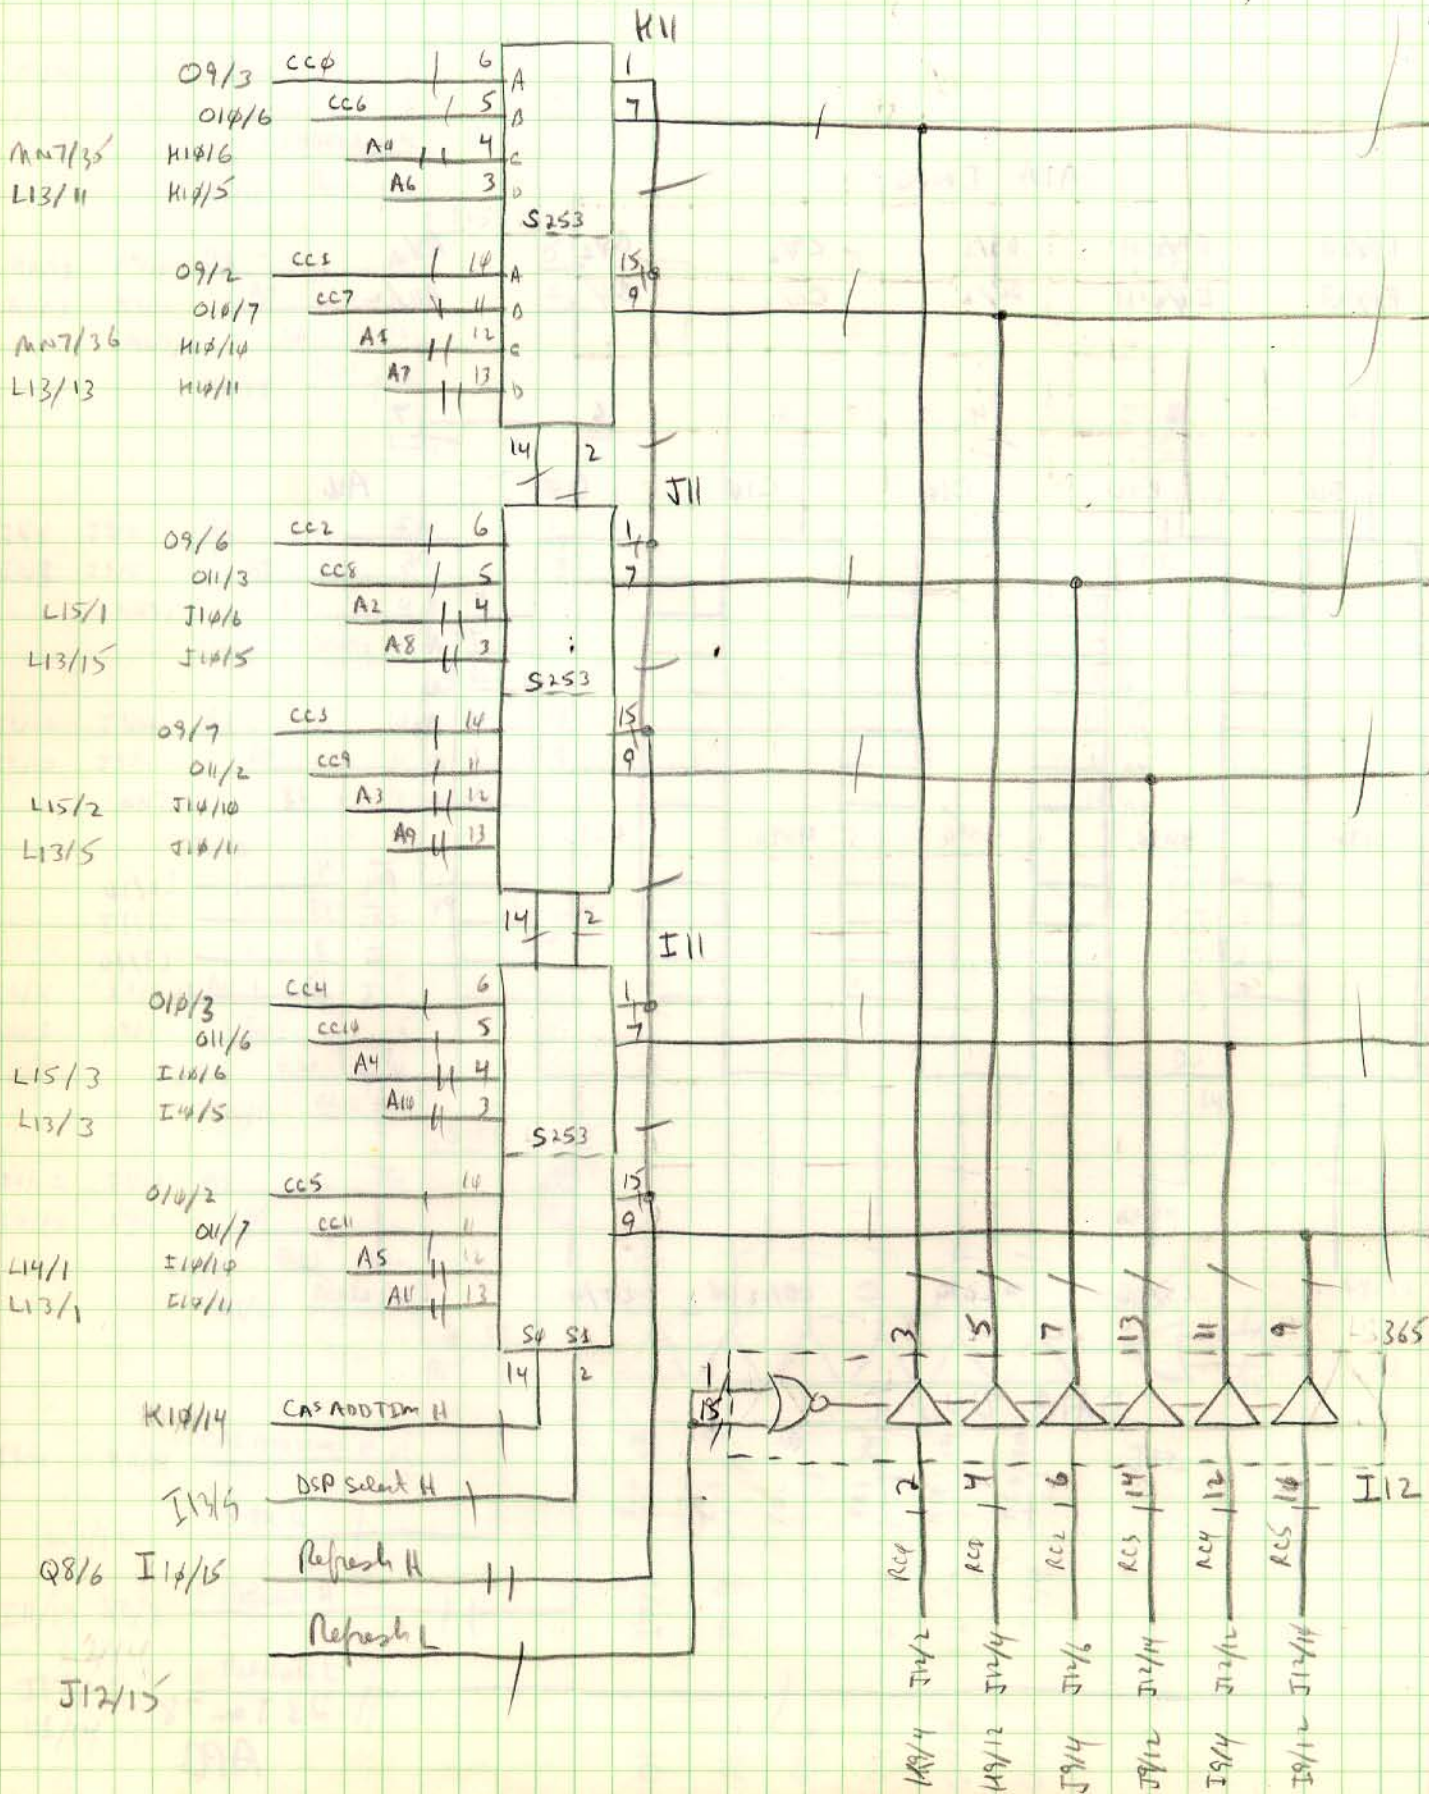 H11
O9/3 CCϕ 6 A 1
O1ϕ/6 CC6 5 B 7
MN7/35 H1ϕ/6 Aϕ 4 C
L13/11 H1ϕ/5 A6 3 D
S253
O9/2 CC1 1ϕ A 15
O1ϕ/7 CC7 11 B 9
MN7/36 H1ϕ/1ϕ A1 12 C
L13/13 H1ϕ/11 A7 13 D
14 2
J11
O9/6 CC2 6 1
O11/3 CC8 5 7
L15/1 J1ϕ/6 A2 4
L13/15 J1ϕ/5 A8 3
S253
O9/7 CC3 1ϕ 15
O11/2 CC9 11 9
L15/2 J1ϕ/1ϕ A3 12
L13/5 J1ϕ/11 A9 13
14 2
I11
O1ϕ/3 CC4 6 1
O11/6 CC1ϕ 5 7
L15/3 I1ϕ/6 A4 4
L13/3 I1ϕ/5 A1ϕ 3
S253
O1ϕ/2 CC5 1ϕ 15
O11/7 CC11 11 9
L14/1 I1ϕ/1ϕ A5 12
L13/1 I1ϕ/11 A11 13
Sϕ S1
14 2
3 5 7 13 11 9 365
1
15
K1ϕ/14 CAS ADDTIM H
2 4 6 14 12 1ϕ I12
I13/5 DSP Select H
RCϕ RC1 RC2 RC3 RC4 RC5
Q8/6 I1ϕ/15 Refresh H
Refresh L
J12/15
J12/2 J12/4 J12/6 J12/14 J12/12 J12/1ϕ
H9/4 H9/12 J9/4 J9/12 I9/4 I9/12